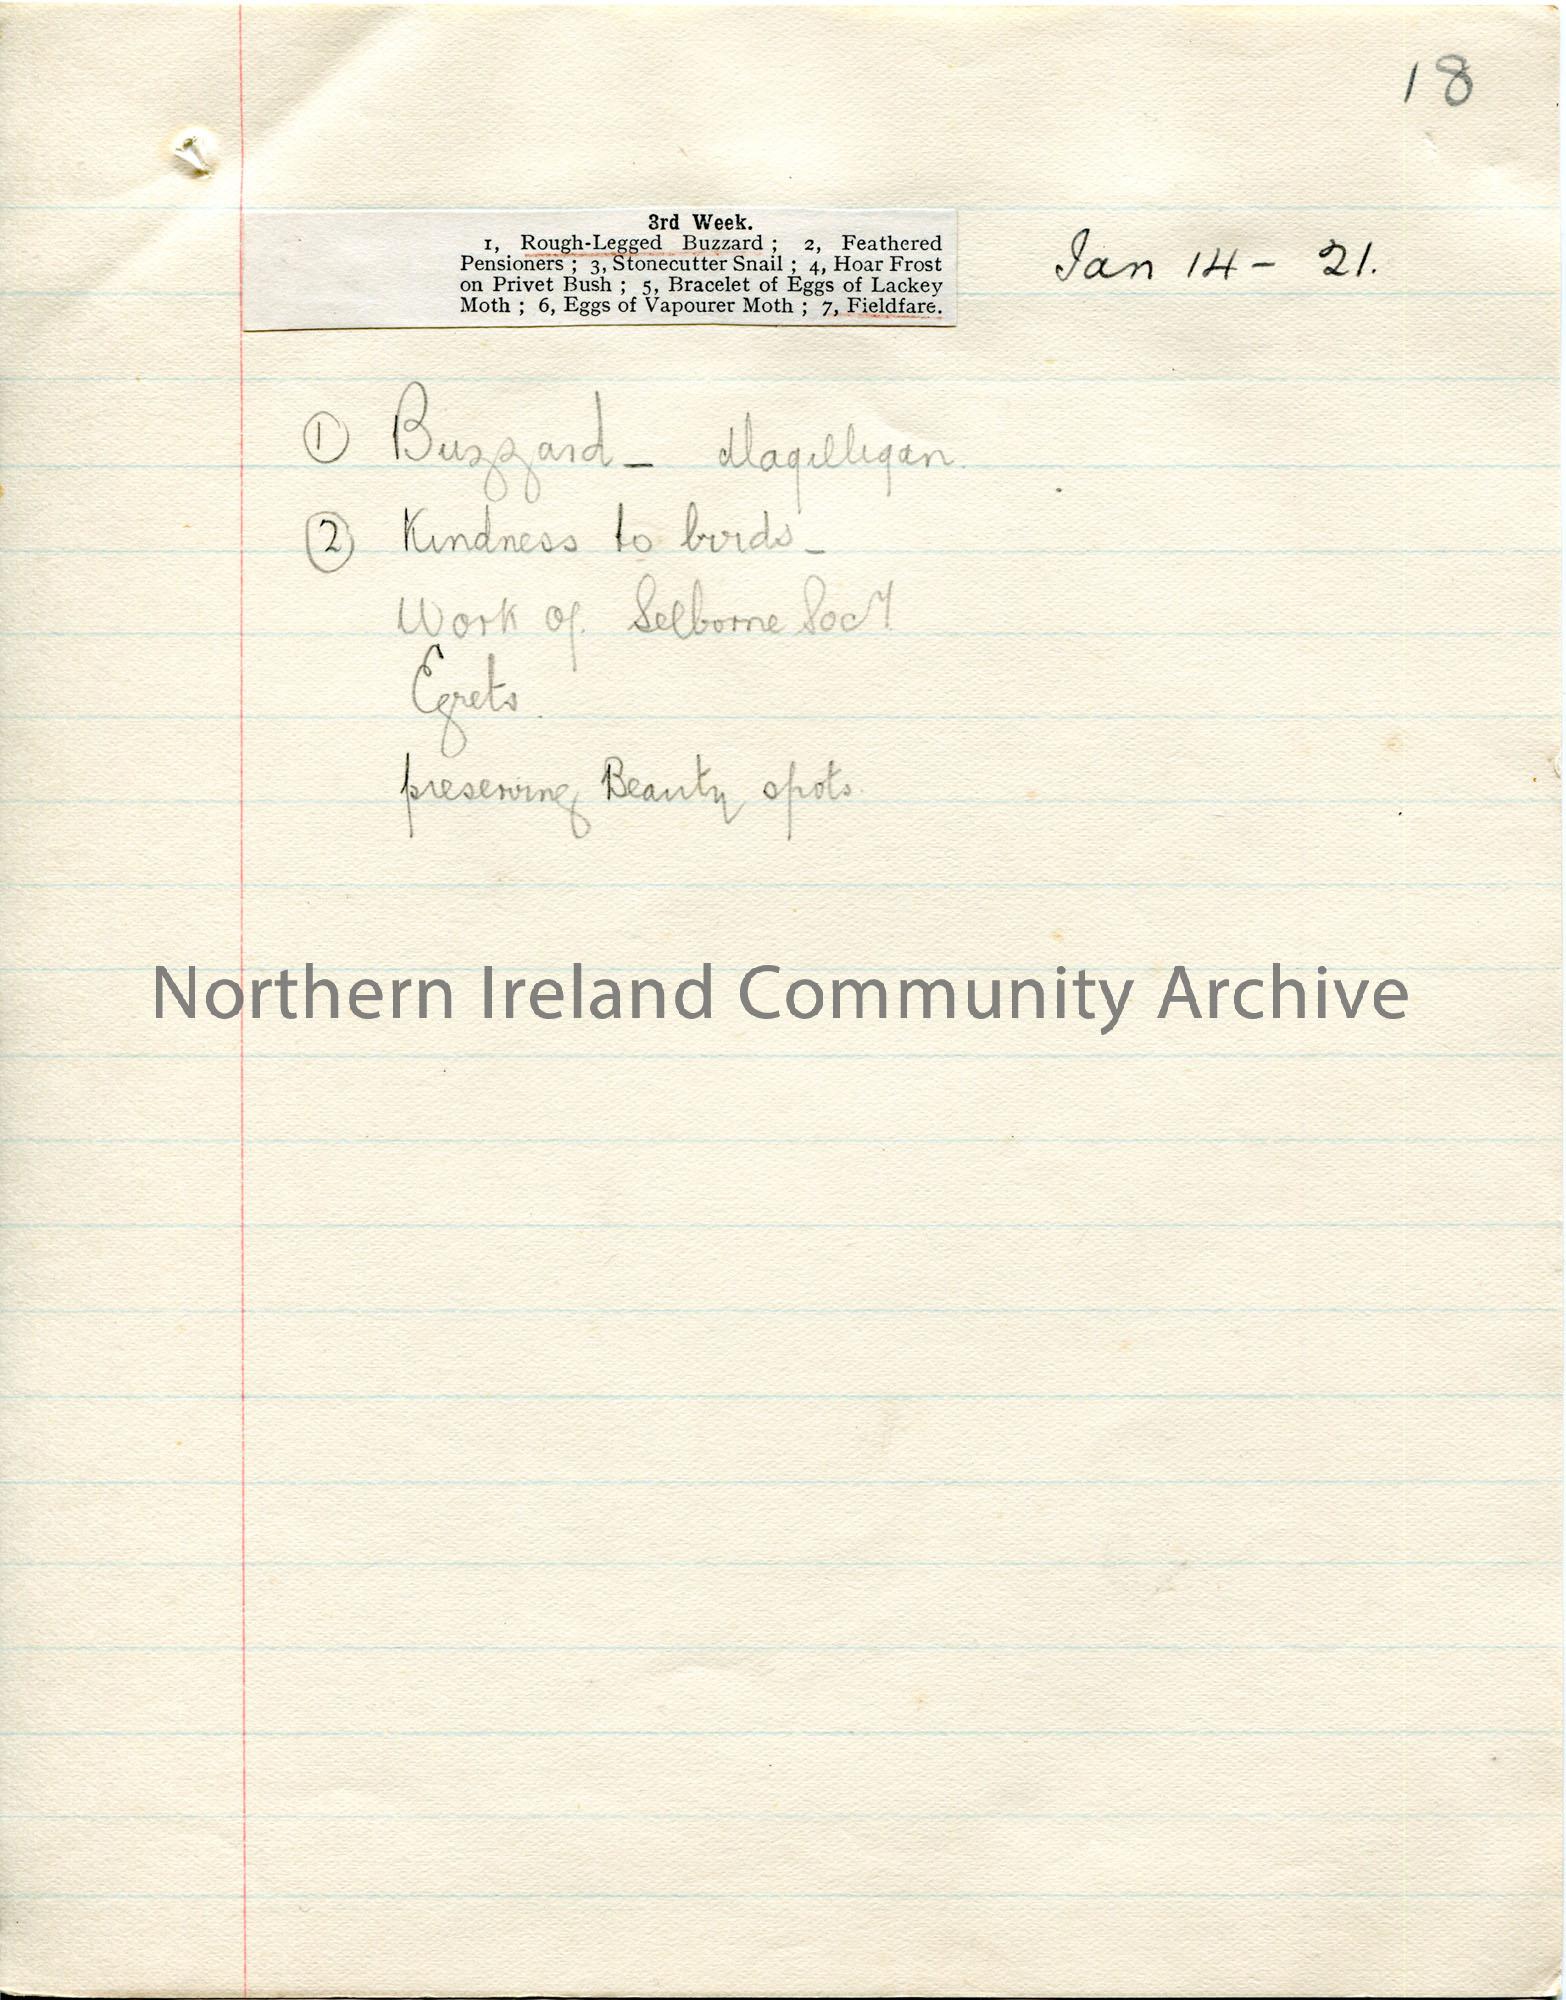 18
3rd Week.
1, Rough-Legged Buzzard ; 2, Feathered
Pensioners ; 3, Stonecutter Snail ; 4, Hoar Frost
on Privet Bush ; 5, Bracelet of Eggs of Lackey
Moth ; 6, Eggs of Vapourer Moth ; 7, Fieldfare.
Jan 14 - 21.
① Buzzard - Magilligan.
② Kindness to birds -
Work of Selborne Socy.
Egrets.
preserving Beauty spots.
Northern Ireland Community Archive